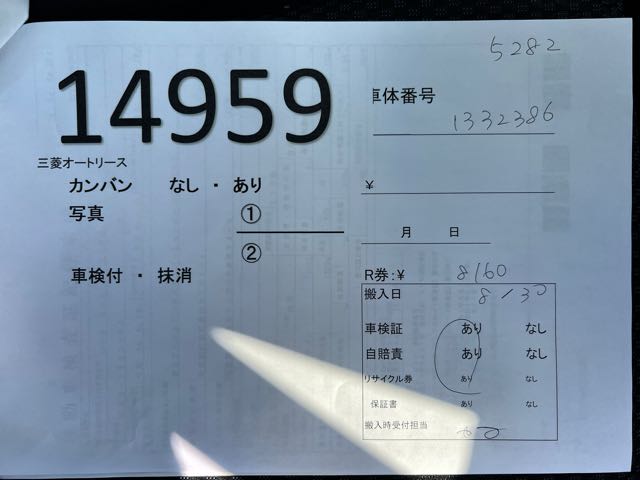 5282
14959
車体番号
1332386
三菱オートリース
カンバン なし ・ あり
¥
写真 ①
②
月 日
車検付 ・ 抹消
R券:¥ 8160
搬入日 8/30
車検証 あり なし
自賠責 あり なし
リサイクル券 あり なし
保証書 あり なし
搬入時受付担当